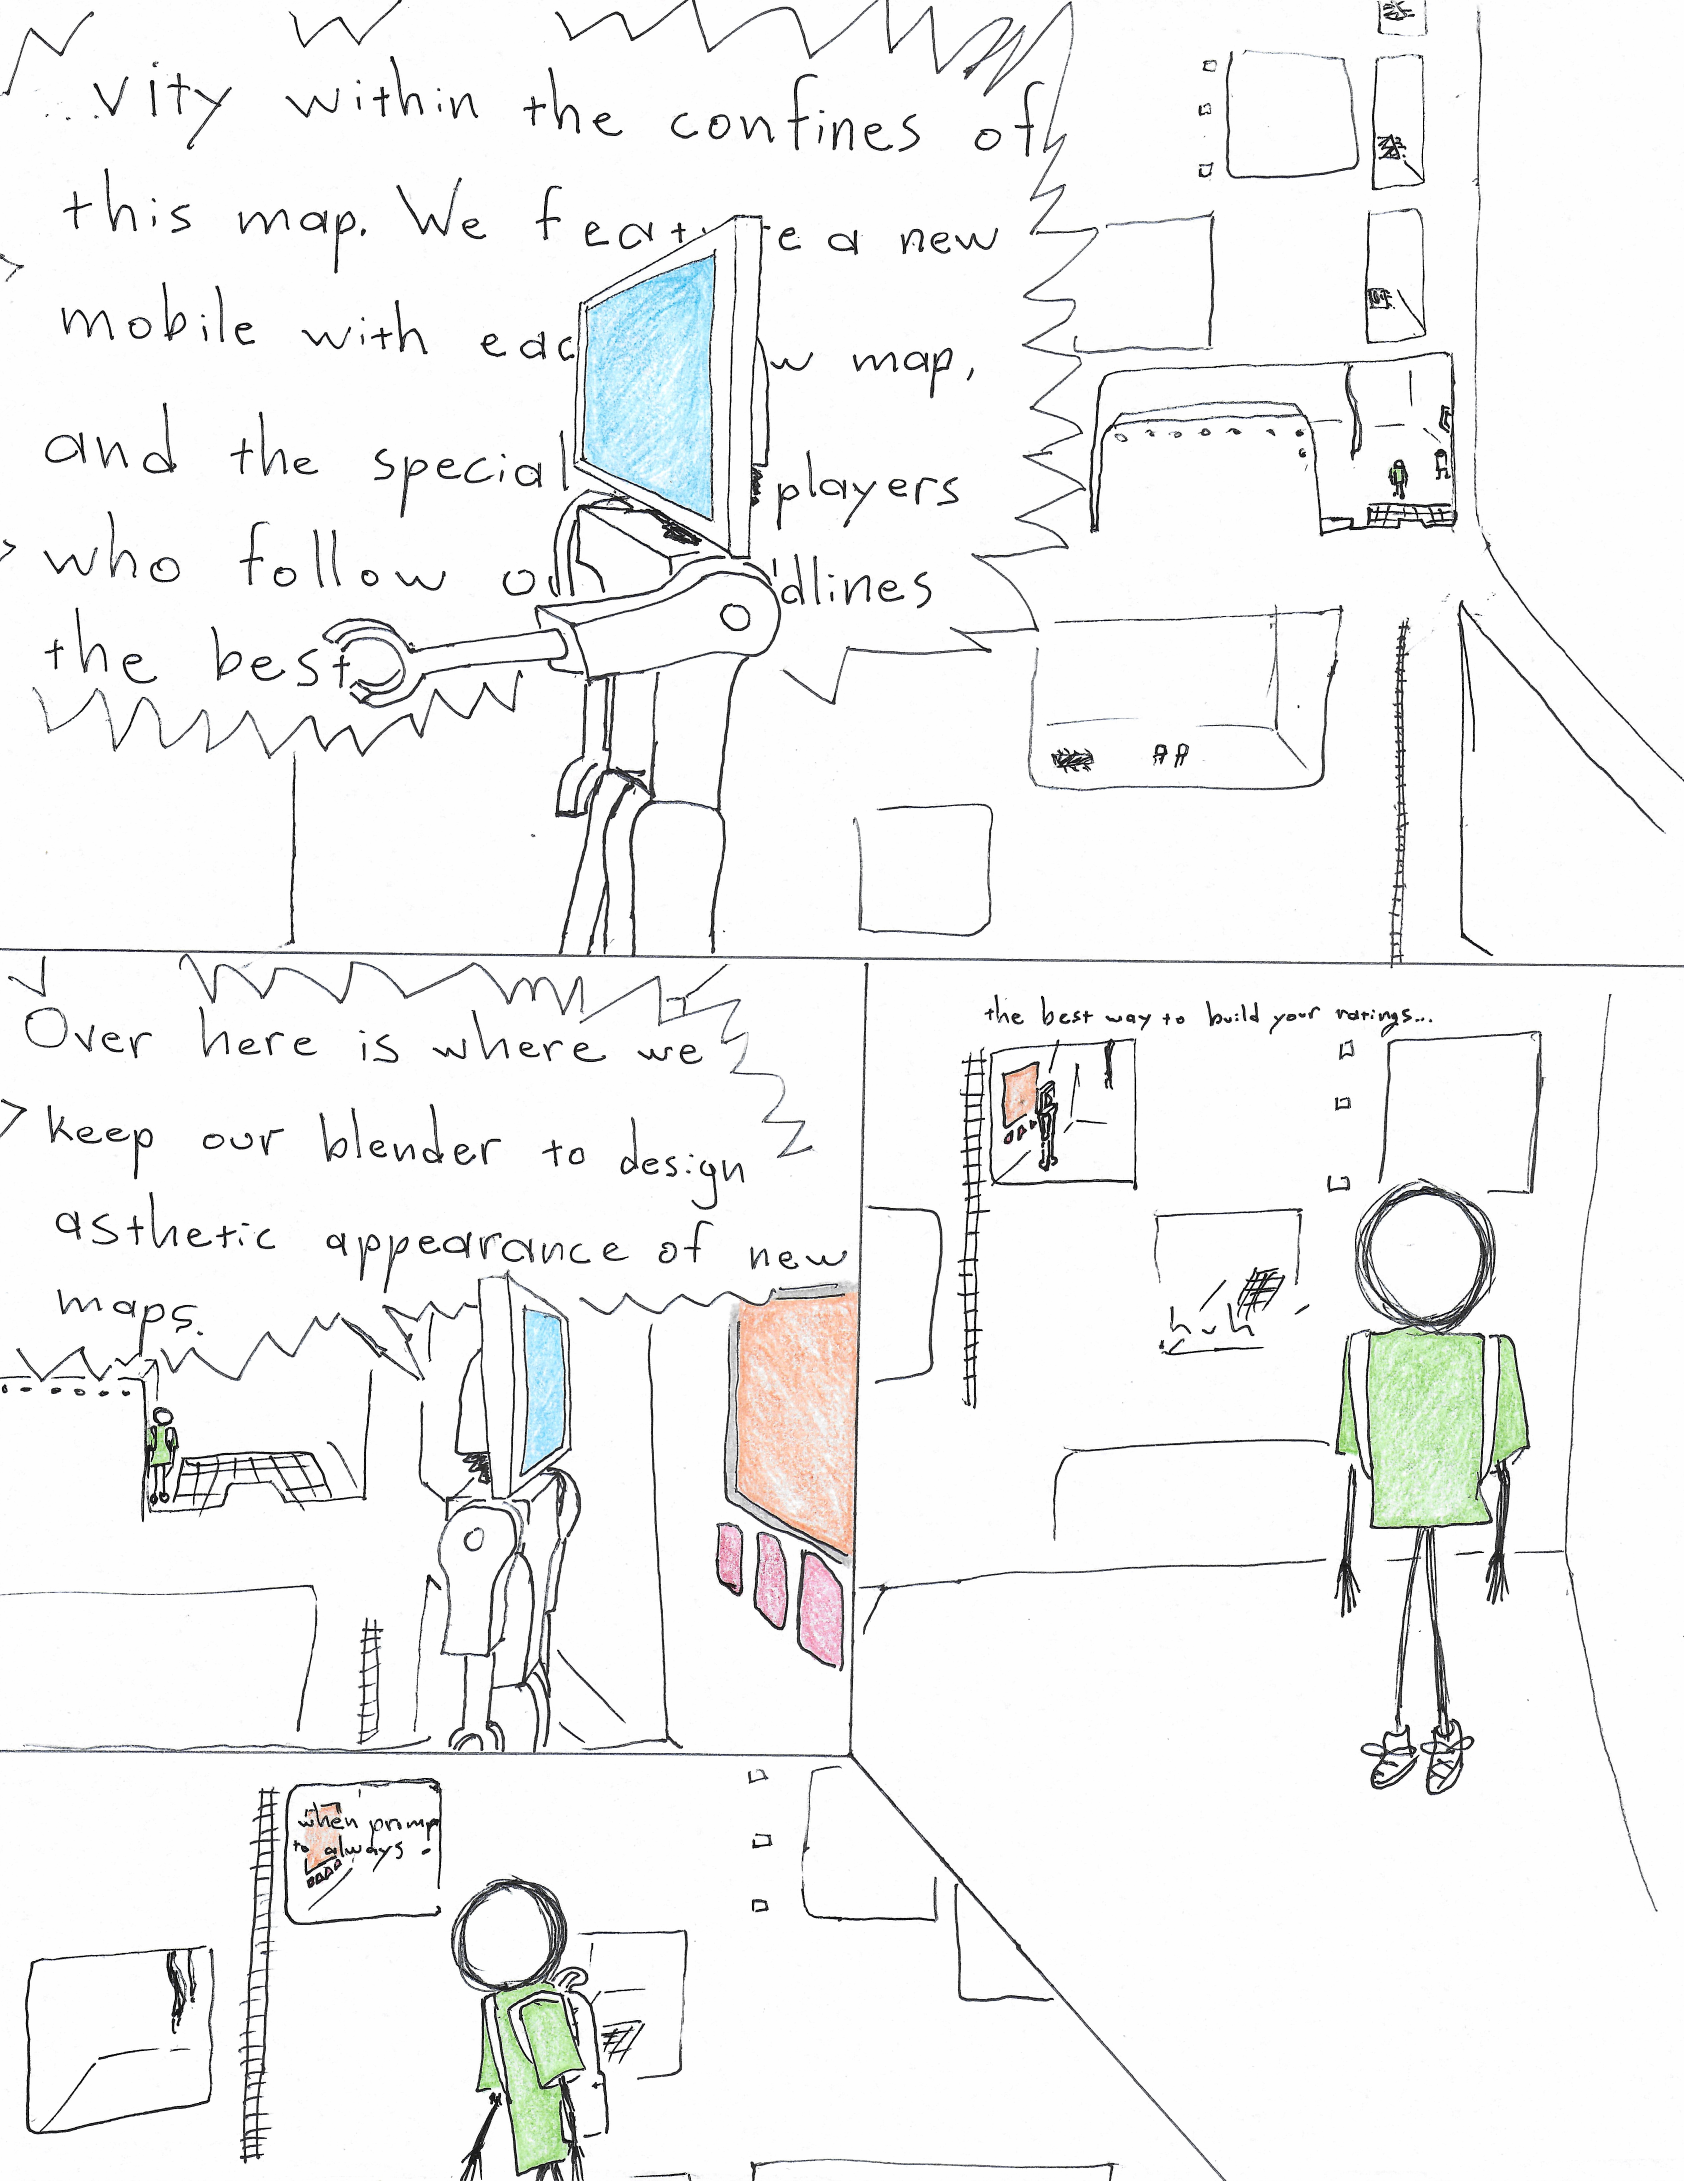 ...vity within the confines of
this map. We feat e a new
mobile with eac w map,
and the special players
who follow o dlines
the best
Over here is where we
keep our blender to design
asthetic appearance of new
maps.
the best way to build your ratings...
huh
when promp
to always